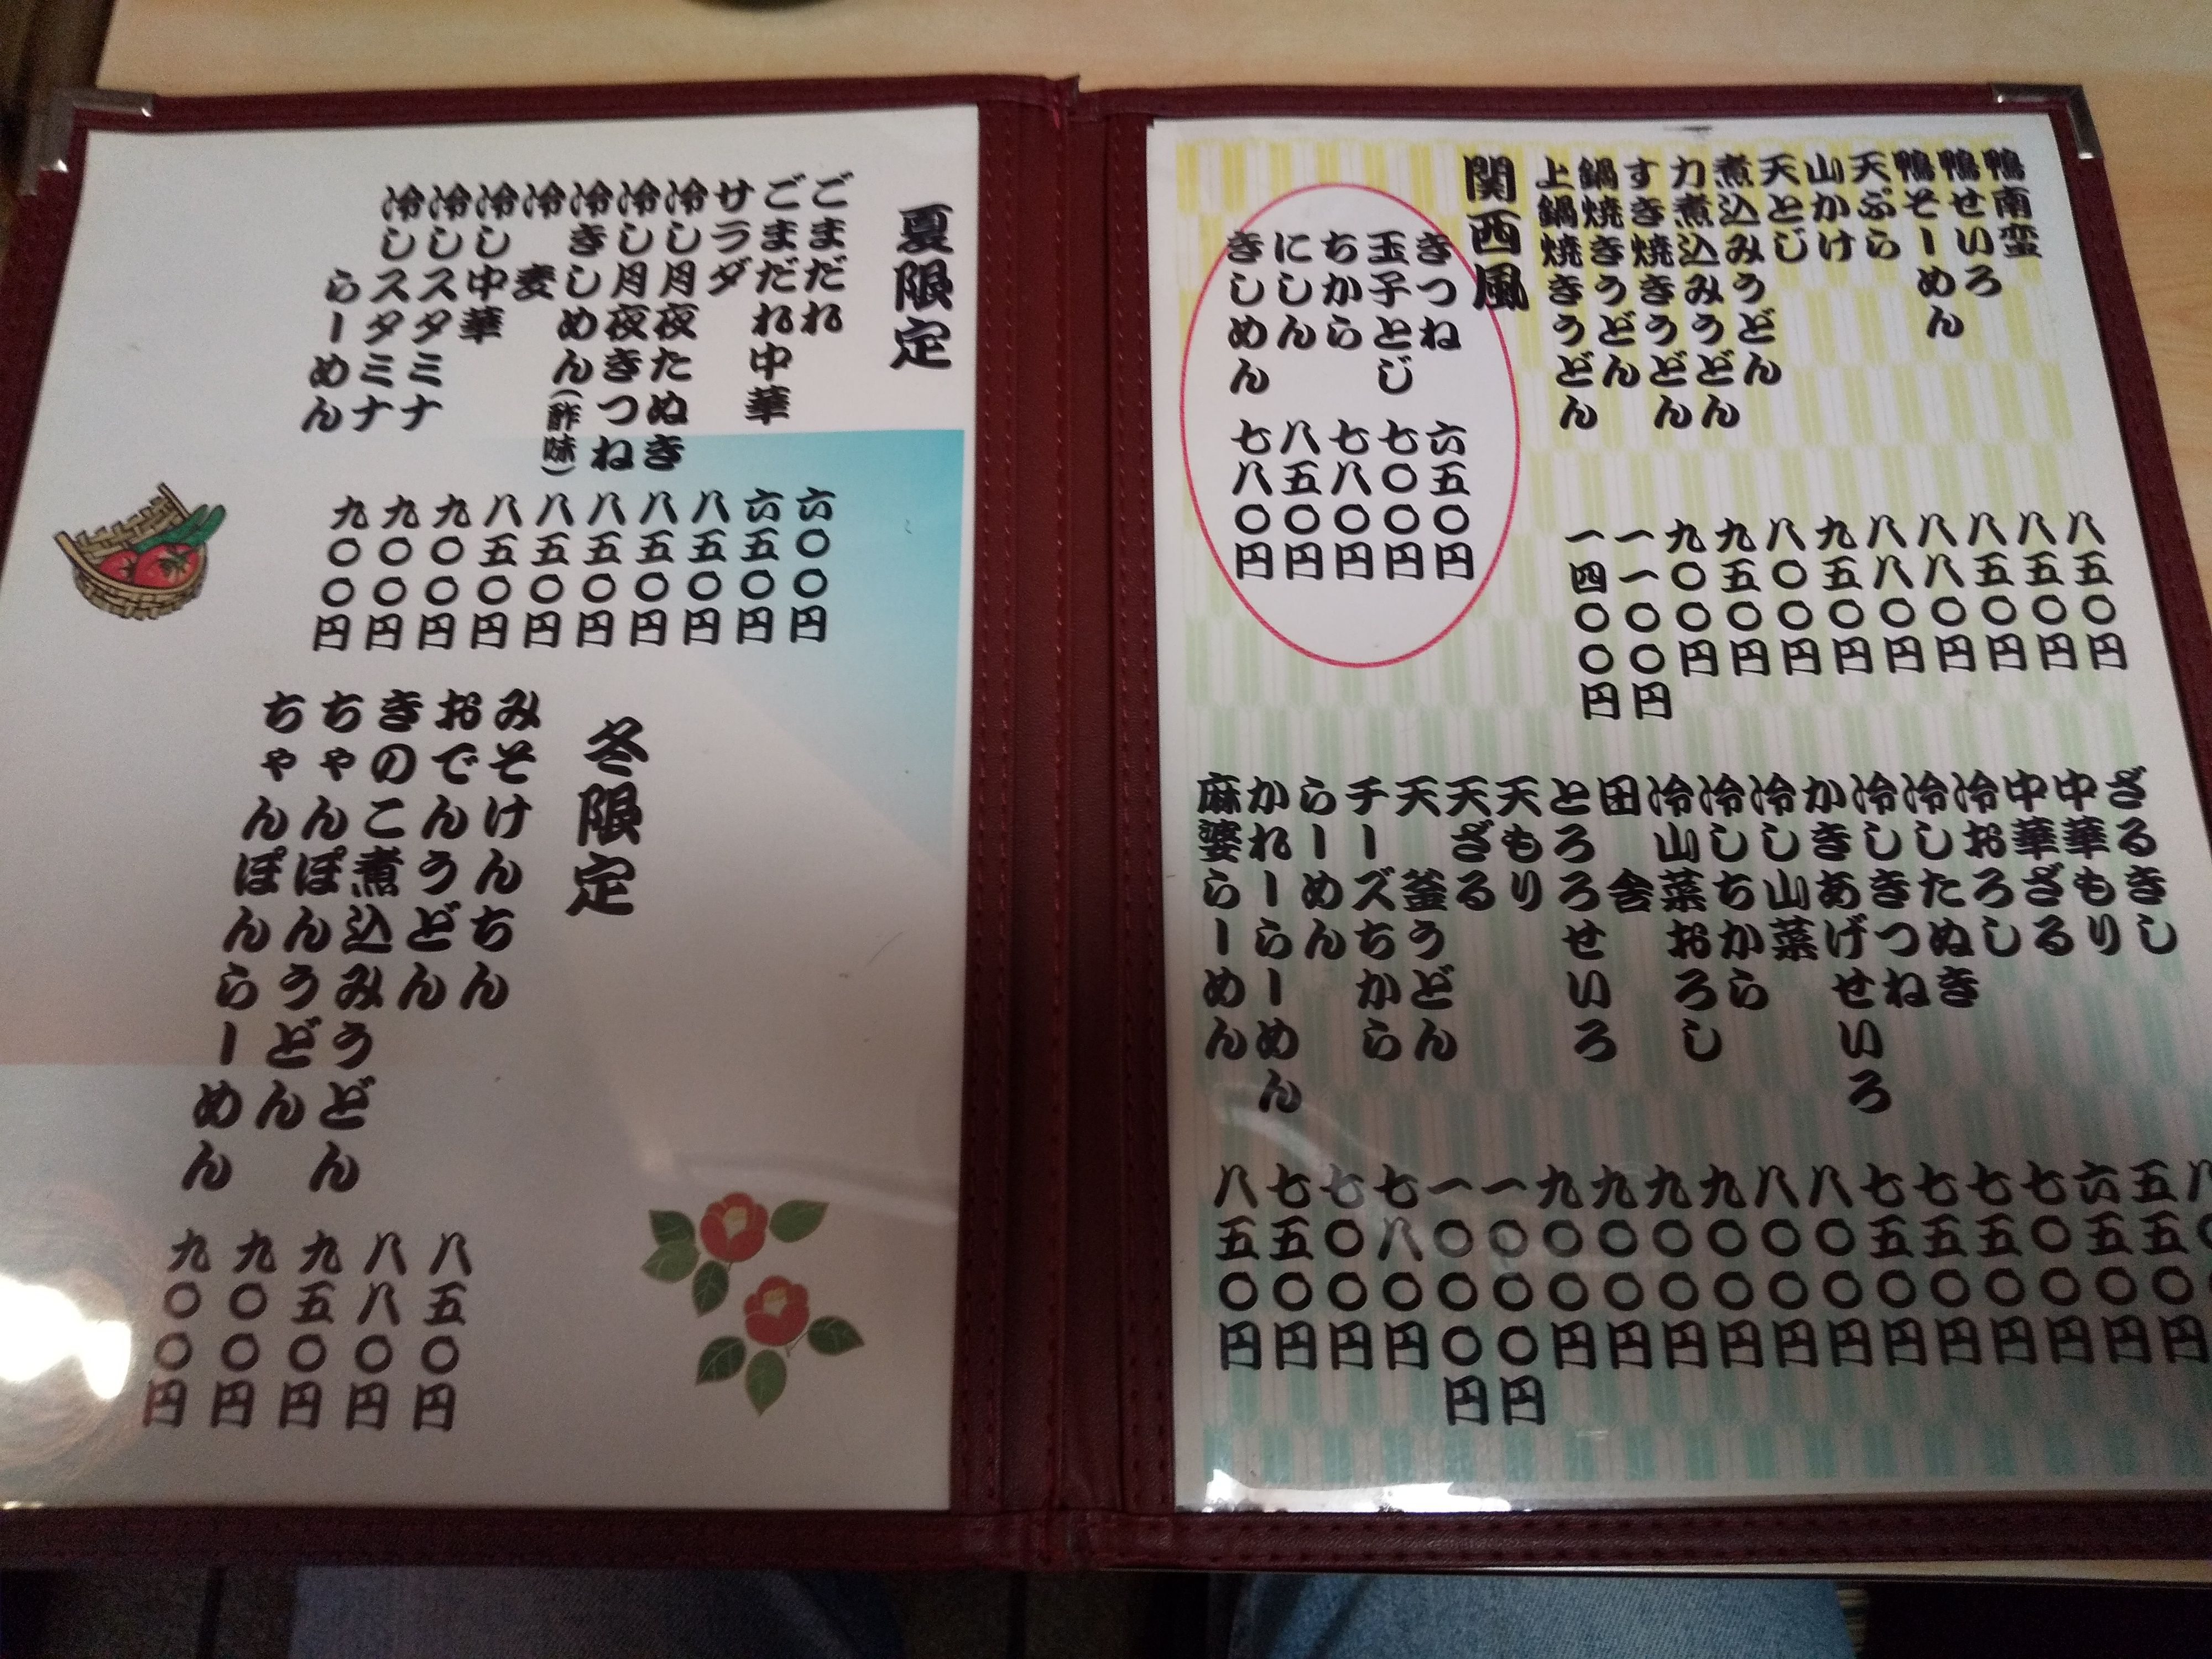 鴨南蛮 八五〇円
鴨せいろ 八五〇円
鴨そーめん 八五〇円
天ぷら 八八〇円
山かけ 八八〇円
天とじ 九五〇円
煮込みうどん 八〇〇円
力煮込みうどん 九五〇円
すき焼きうどん 九〇〇円
鍋焼きうどん 一一〇〇円
上鍋焼きうどん 一四〇〇円
関西風
きつね 六五〇円
玉子とじ 七〇〇円
ちから 七八〇円
にしん 八五〇円
きしめん 七八〇円
ざるきし
中華もり 五五〇円
中華ざる 六五〇円
冷おろし 七〇〇円
冷したぬき 七五〇円
冷しきつね 七五〇円
かきあげせいろ 七五〇円
冷し山菜 八〇〇円
冷しちから 八〇〇円
冷山菜おろし 九〇〇円
田舎 九〇〇円
とろろせいろ 九〇〇円
天もり 九〇〇円
天ざる 一〇〇〇円
天釜うどん 一〇〇〇円
チーズちから 七八〇円
らーめん 七〇〇円
かれーらーめん 七五〇円
麻婆らーめん 八五〇円
夏限定
ごまだれ 六〇〇円
ごまだれ中華 六五〇円
サラダ 八五〇円
冷し月夜たぬき 八五〇円
冷し月夜きつね 八五〇円
冷きしめん(酢味) 八五〇円
冷麦 八五〇円
冷し中華 九〇〇円
冷しスタミナ 九〇〇円
冷しスタミナらーめん 九〇〇円
冬限定
みそけんちん 八五〇円
おでんうどん 八八〇円
きのこ煮込みうどん 九五〇円
ちゃんぽんうどん 九〇〇円
ちゃんぽんらーめん 九〇〇円